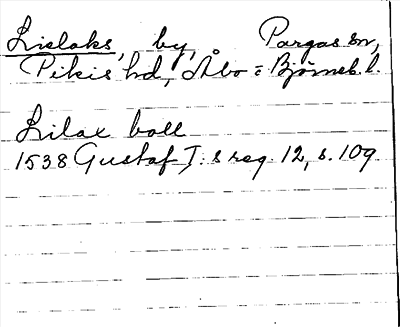 Lielaks, by, Pargas sn,
Pikis hd, Åbo = Bjørneb. l.
Lilax boll
1538 Gustaf I: s reg. 12, s. 109